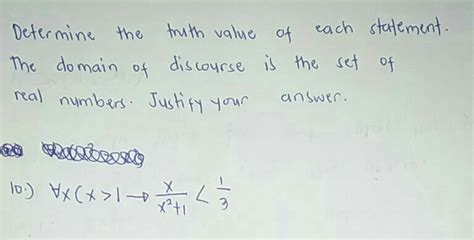 Determine the truth value of each statement.
The domain of discourse is the set of
real numbers. Justify your answer.
10.) ∀x(x>1→ x/(x²+1) < 1/3